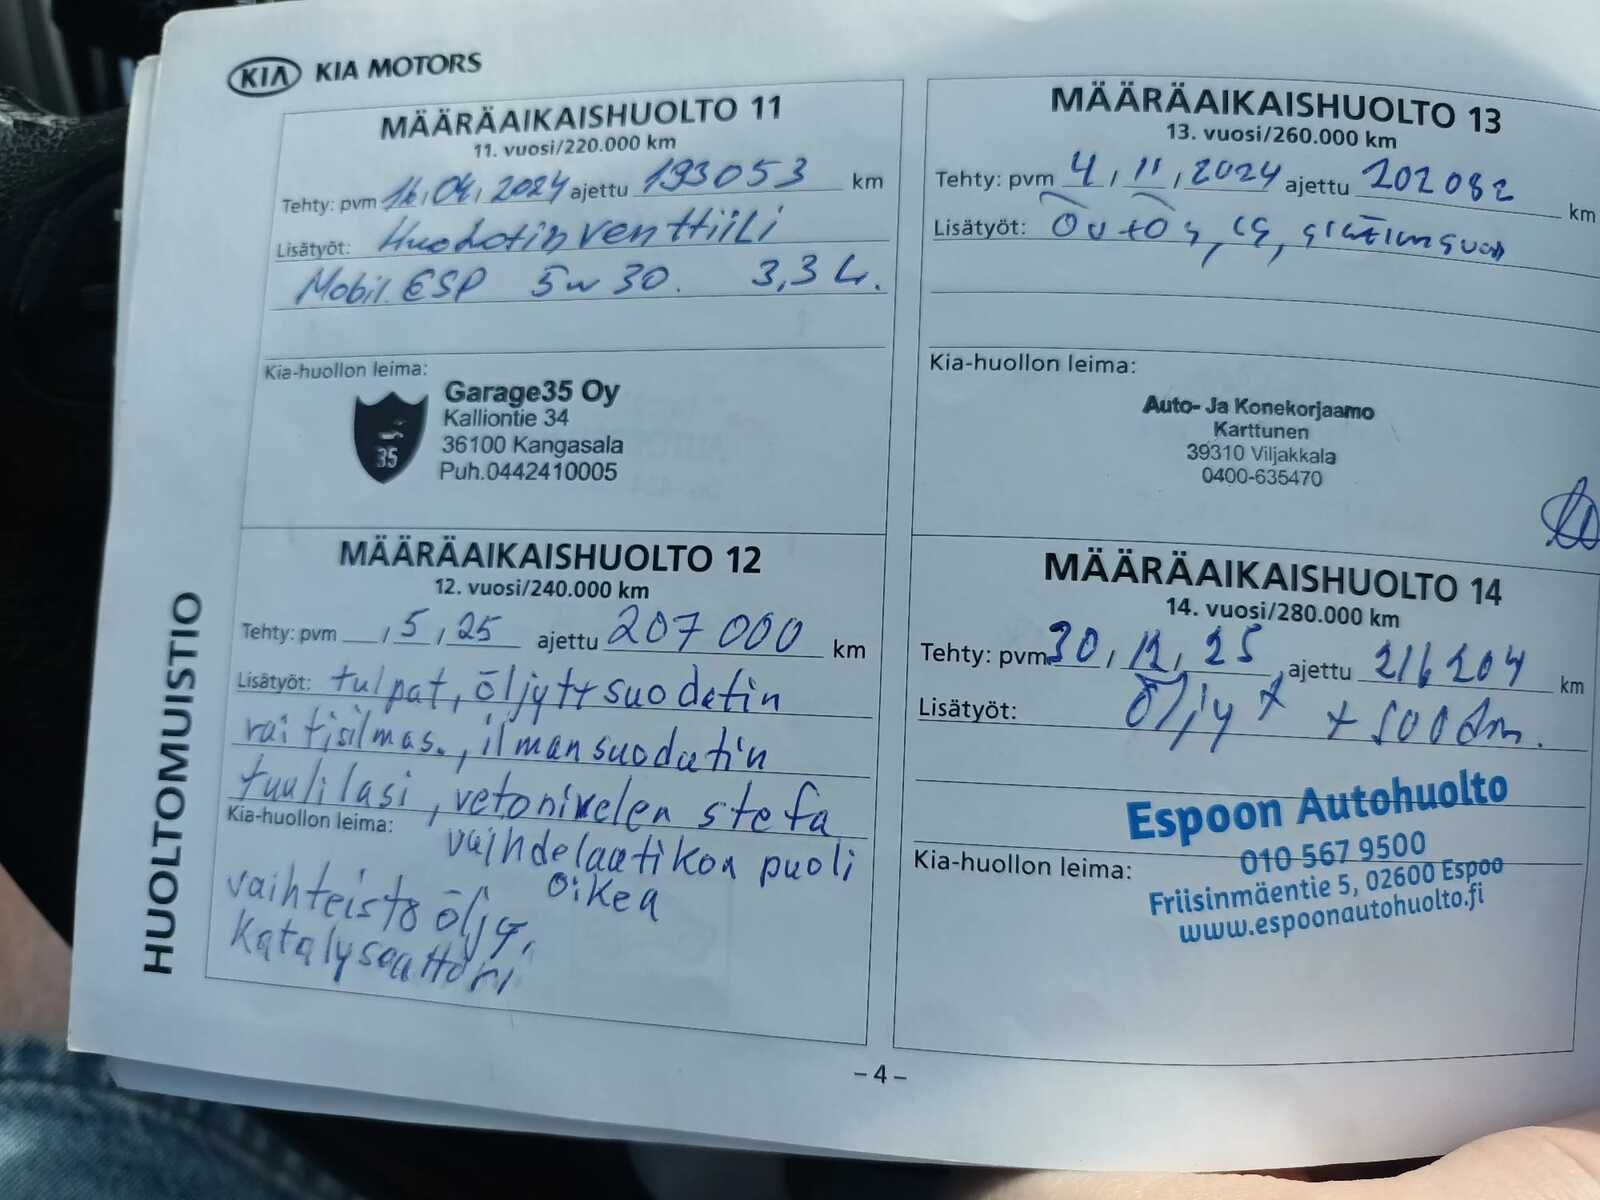 KIA KIA MOTORS
MÄÄRÄAIKAISHUOLTO 11
11. vuosi/220.000 km
Tehty: pvm 16,04,2024 ajettu 193053 km
Lisätyöt: Huohotin venttiili
Mobil ESP 5w30. 3,3 L.
Kia-huollon leima:
35
Garage35 Oy
Kalliontie 34
36100 Kangasala
Puh.0442410005
MÄÄRÄAIKAISHUOLTO 12
12. vuosi/240.000 km
Tehty: pvm , 5 , 25 ajettu 207 000 km
Lisätyöt: tulpat, öljyt+suodatin
raitisilmas., ilmansuodatin
tuulilasi, vetonivelen stefa
Kia-huollon leima: vaihdelaatikon puoli
oikea
vaihteisto öljy,
Katalysaattori
MÄÄRÄAIKAISHUOLTO 13
13. vuosi/260.000 km
Tehty: pvm 4 , 11 , 2024 ajettu 202082 km
Lisätyöt:
Kia-huollon leima:
Auto- Ja Konekorjaamo
Karttunen
39310 Viljakkala
0400-635470
MÄÄRÄAIKAISHUOLTO 14
14. vuosi/280.000 km
Tehty: pvm 30 , 12 , 25 ajettu 216204 km
Lisätyöt: Öljyt +
Espoon Autohuolto
010 567 9500
Kia-huollon leima:
Friisinmäentie 5, 02600 Espoo
www.espoonautohuolto.fi
HUOLTOMUISTIO
– 4 –